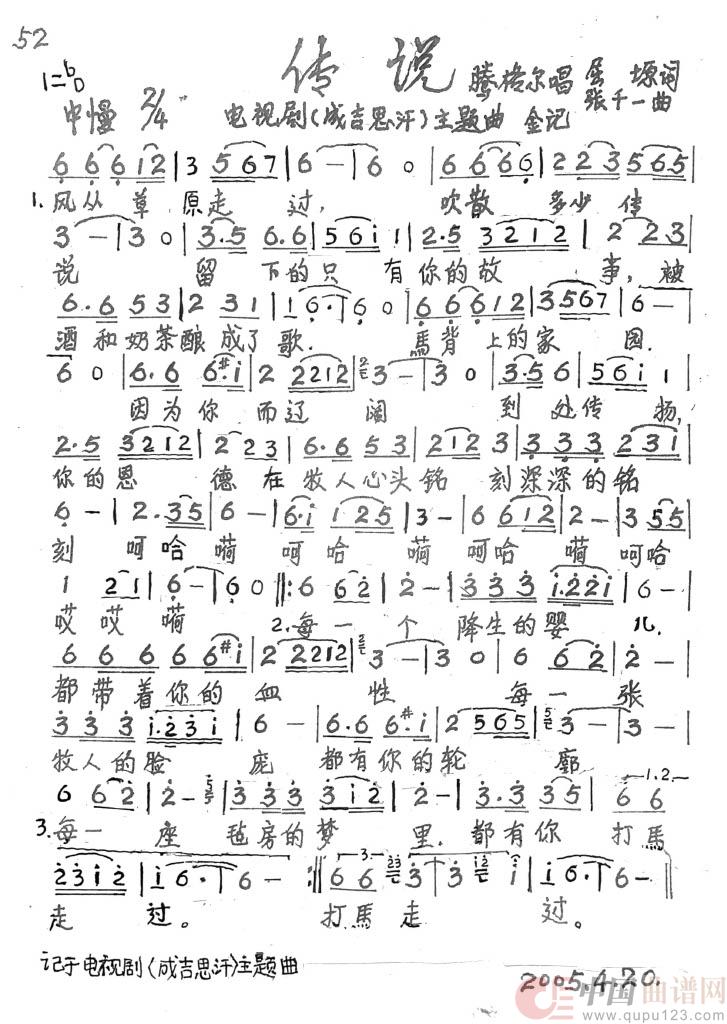 52
传 说
1=♭D
腾格尔唱
屈 塬词
张千一曲
中慢 2/4
电视剧(成吉思汗)主题曲 金记
6 6 6 1 2 | 3 5 6 7 | 6 - | 6 0 | 6 6 6 6 | 2 2 3 5 6 5 |
1. 风从草原走过, 吹散多少传
3 - | 3 0 | 3. 5 6. 6 | 5 6 i 1 | 2. 5 3 2 1 2 | 2 2 3 |
说 留下的只有你的故事,被
6. 6 5 3 | 2 3 1 | 1 6. | 6 0 | 6 6 6 1 2 | 3 5 6 7 | 6 - |
酒和奶茶酿成了歌. 馬背上的家园.
6 0 | 6. 6 6 #. i | 2 2 2 1 2 | 3 - | 3 0 | 3. 5 6 | 5 6 i 1 |
因为你而辽阔 到处传扬,
2. 5 3 2 1 2 | 2 2 3 | 6. 6 5 3 | 2 1 2 3 | 3. 3 3 | 2 3 1 |
你的恩德在牧人心头铭刻深深的铭
6 - | 2. 3 5 | 6 - | 6. i 1 2 5 | 3 - | 6 6 1 2 | 2 - | 3 5 5 |
刻 呵哈嗬 呵哈嗬 呵哈嗬 呵哈
1 2 1 | 6 - | 6 0 ‖: 6 6 2 | 2 - | 3 3 3 | i. 2 2 i | 6 - |
哎哎嗬 2. 每一个降生的婴儿.
6 6 6 6 6 #i | 2 2 2 1 2 | 3 - | 3 0 | 6 6 2 | 2 - |
都带着你的血性 每一张
3 3 3 | i. 2 3 i | 6 - | 6. 6 6 #. i | 2 5 6 5 | 3 - | 3 - |
牧人的脸庞 都有你的轮廓
6 6 2 | 2 - | 3 3 3 | 3 i 2 | 2 - | 3. 3 3 5 | 6 6
1.2.
3. 每一座毡房的梦里. 都有你打馬
2 3 i 2 | i 6. 6 - :‖ 6 6 3 | 3 i | i 6. 6 - ‖
3.
走过。 打馬走过。
记于电视剧(成吉思汗)主题曲
2005.4.20.
中国曲谱网
www.qupu123.com